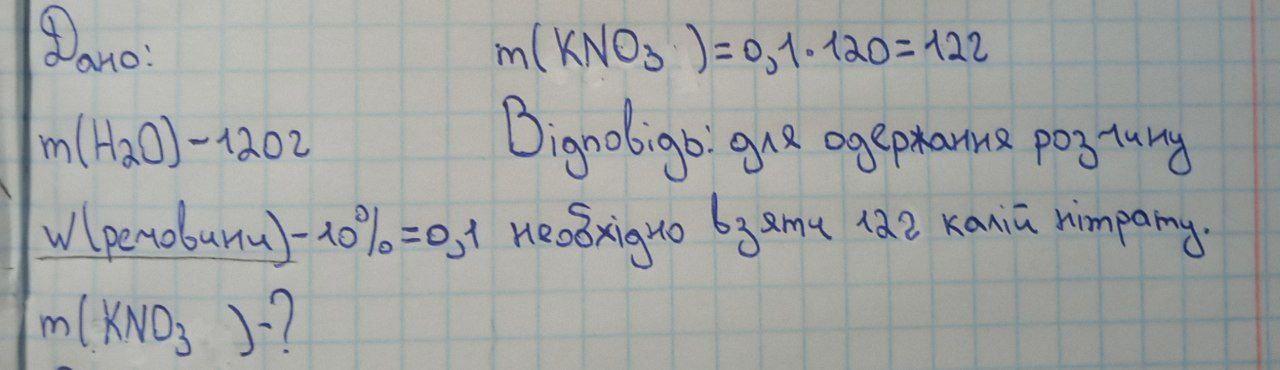 Дано:
m(H2O)-120г
w(речовини)-10%=0,1
m(KNO3)-?
m(KNO3)=0,1·120=12г
Відповідь: для одержання розчину
необхідно взяти 12г калій нітрату.